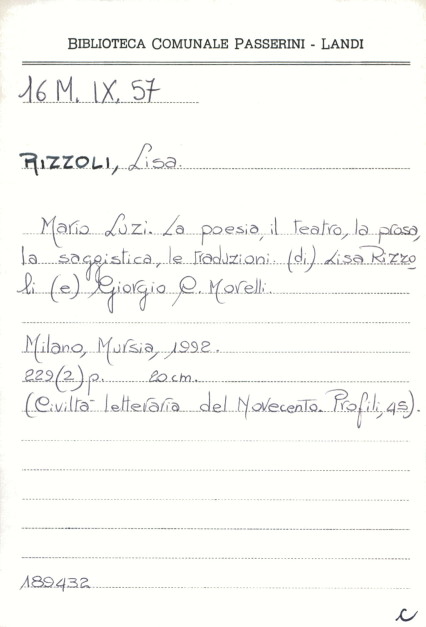 BIBLIOTECA COMUNALE PASSERINI - LANDI
16 M. IX. 57
RIZZOLI, Lisa.
Mario Luzi. La poesia, il teatro, la prosa,
la saggistica, le traduzioni. (di) Lisa Rizzo
li (e) Giorgio C. Morelli.
Milano, Mursia, 1992.
229(2)p. 20cm.
(Civiltà letteraria del Novecento. Profili, 45).
189432
C